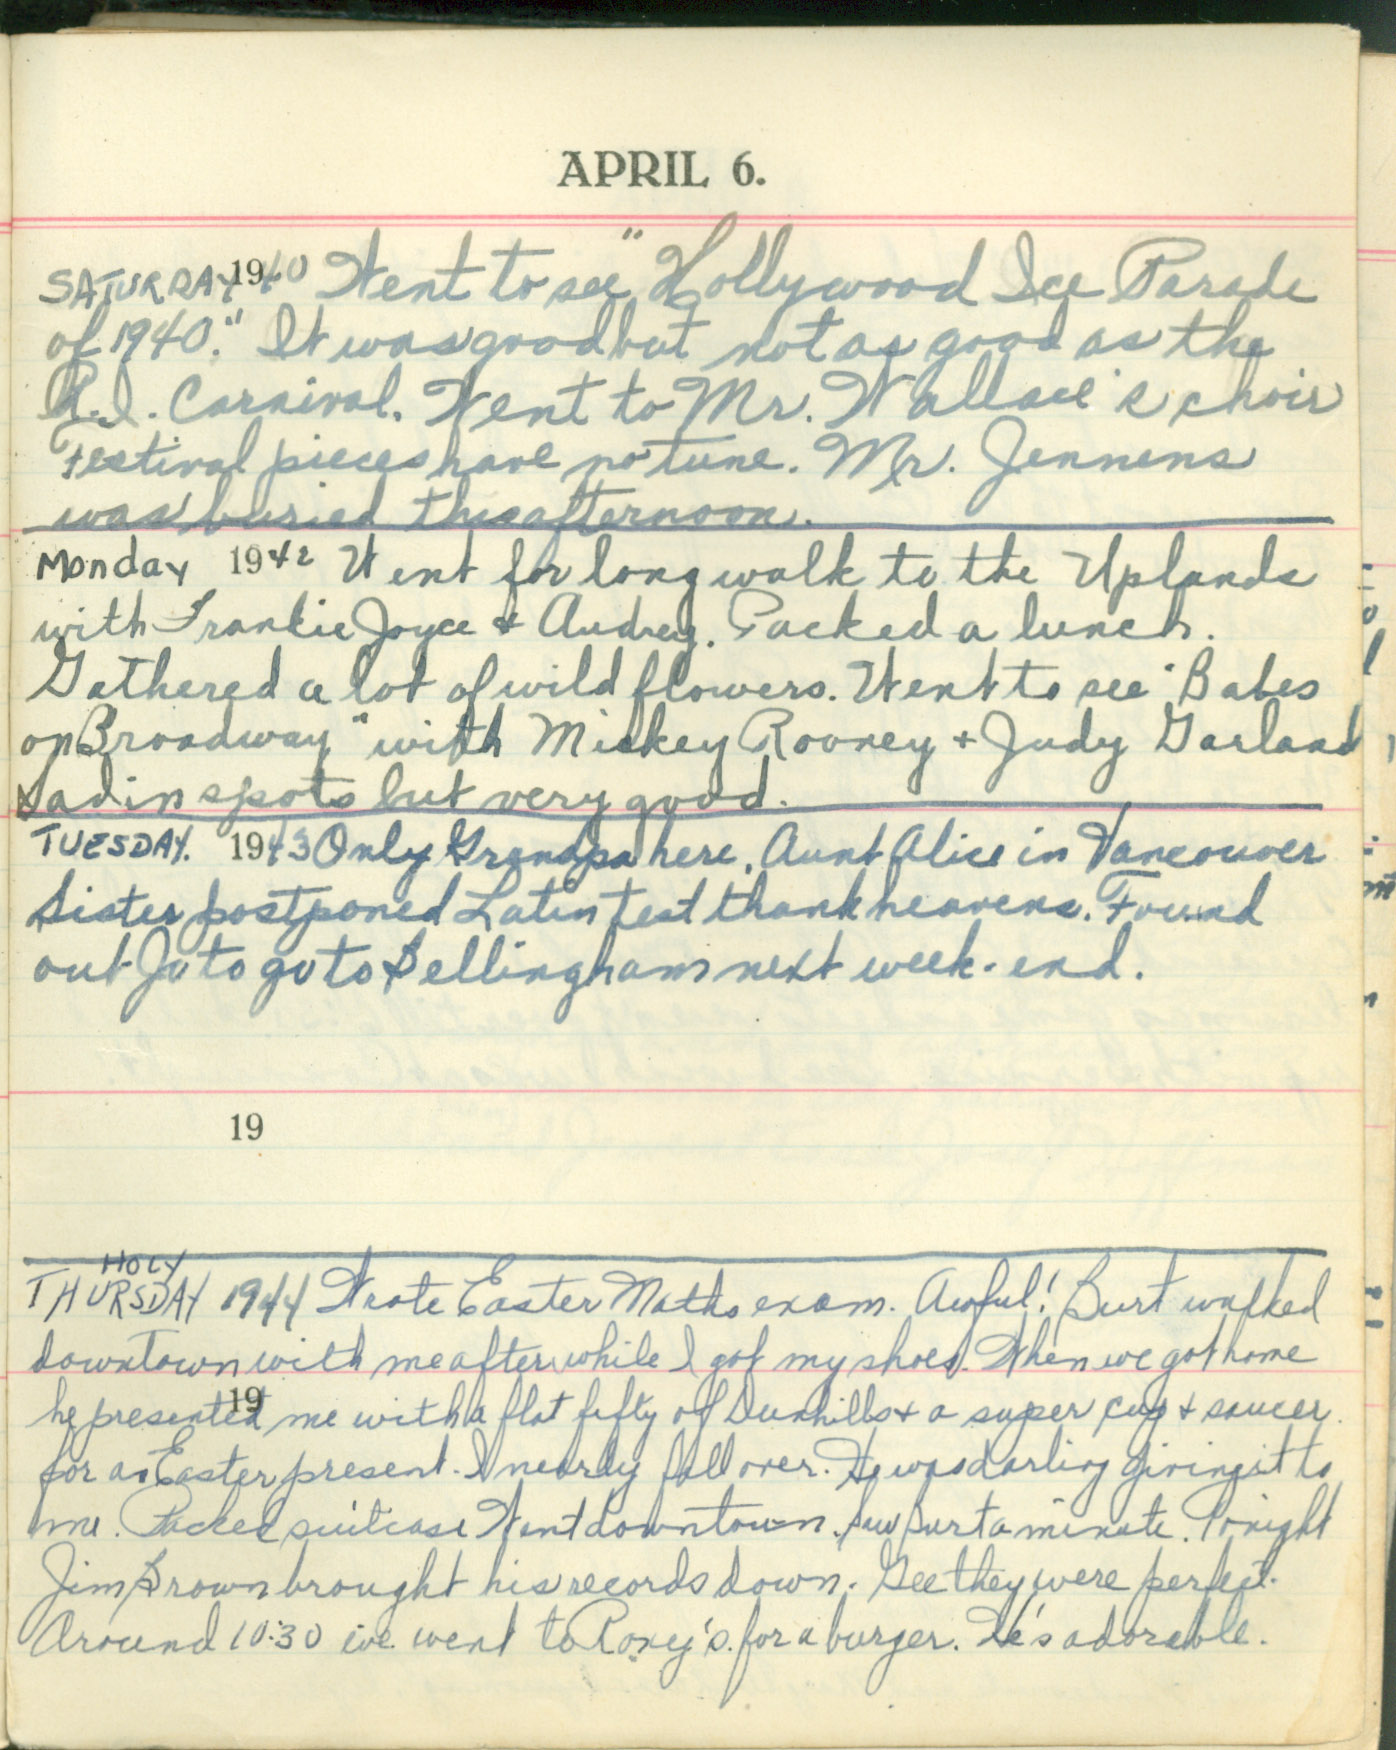 APRIL 6.
SATURDAY 1940 Went to see "Hollywood Ice Parade
of 1940." It was good but not as good as the
R.I. Carnival. Went to Mr. Wallace's choir
Festival pieces have no tune. Mr. Jennens
was buried this afternoon.
Monday 1942 Went for long walk to the Uplands
with Frankie Joyce + Audrey. Packed a lunch.
Gathered a lot of wild flowers. Went to see "Babes
on Broadway" with Mickey Rooney + Judy Garland
Sad in spots but very good.
TUESDAY. 1943 Only Grandpa here. Aunt Alice in Vancouver
Sister postponed Latin test thank heavens. Found
out I to go to Bellingham next week-end.
19
HOLY
THURSDAY 1944 Wrote Easter Maths exam. Awful! Burt walked
downtown with me after while I got my shoes. When we got home
19
he presented me with a flat fifty of Dunhills + a super cup + saucer
for an Easter present. I nearly fell over. He was darling giving it to
me. Packed suitcase Went downtown. Saw Burt a minute. Tonight
Jim Brown brought his records down. Gee they were perfect.
Around 10:30 we went to Roxey's for a burger. He's adorable.